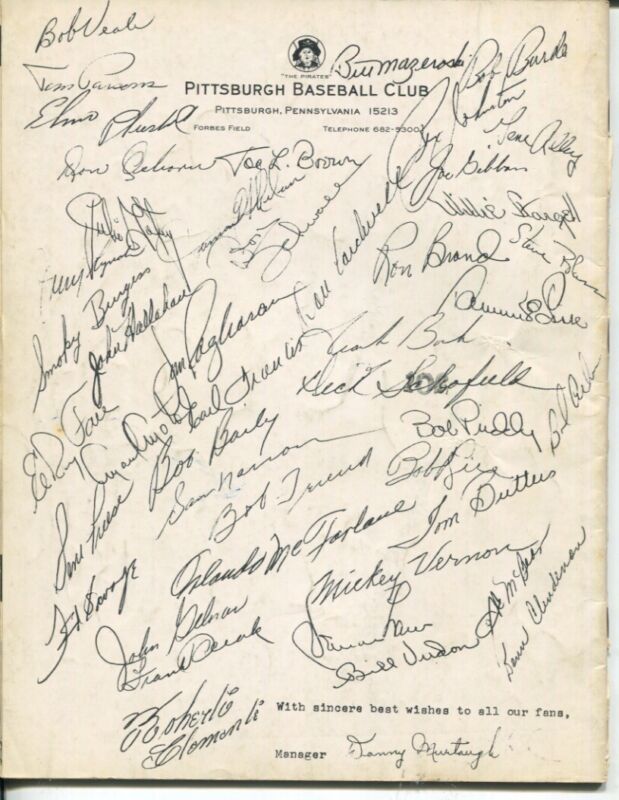 Bob Veale
"THE PIRATES"
Bill Mazeroski
Bob Purkey
Tom Parsons
PITTSBURGH BASEBALL CLUB
PITTSBURGH, PENNSYLVANIA 15213
FORBES FIELD TELEPHONE 682-5300
Rex Johnston
Gene Alley
Don Osborn
Joe L. Brown
Joe Gibbon
Willie Stargell
Don Schwall
Don Cardwell
Ron Brand
Steve Blass
Smoky Burgess
John Hallahan
Jim Pagliaroni
Earl Francis
Dick Schofield
ElRoy Face
Bob Bailey
Bob Priddy
Gene Freese
Sam Narron
Bob Friend
Tom Butters
Orlando McFarlane
Mickey Vernon
Al McBean
Donn Clendenon
John Gelnar
Frank Oceak
Bill Virdon
Roberto
Clemente
With sincere best wishes to all our fans,
Manager Danny Murtaugh